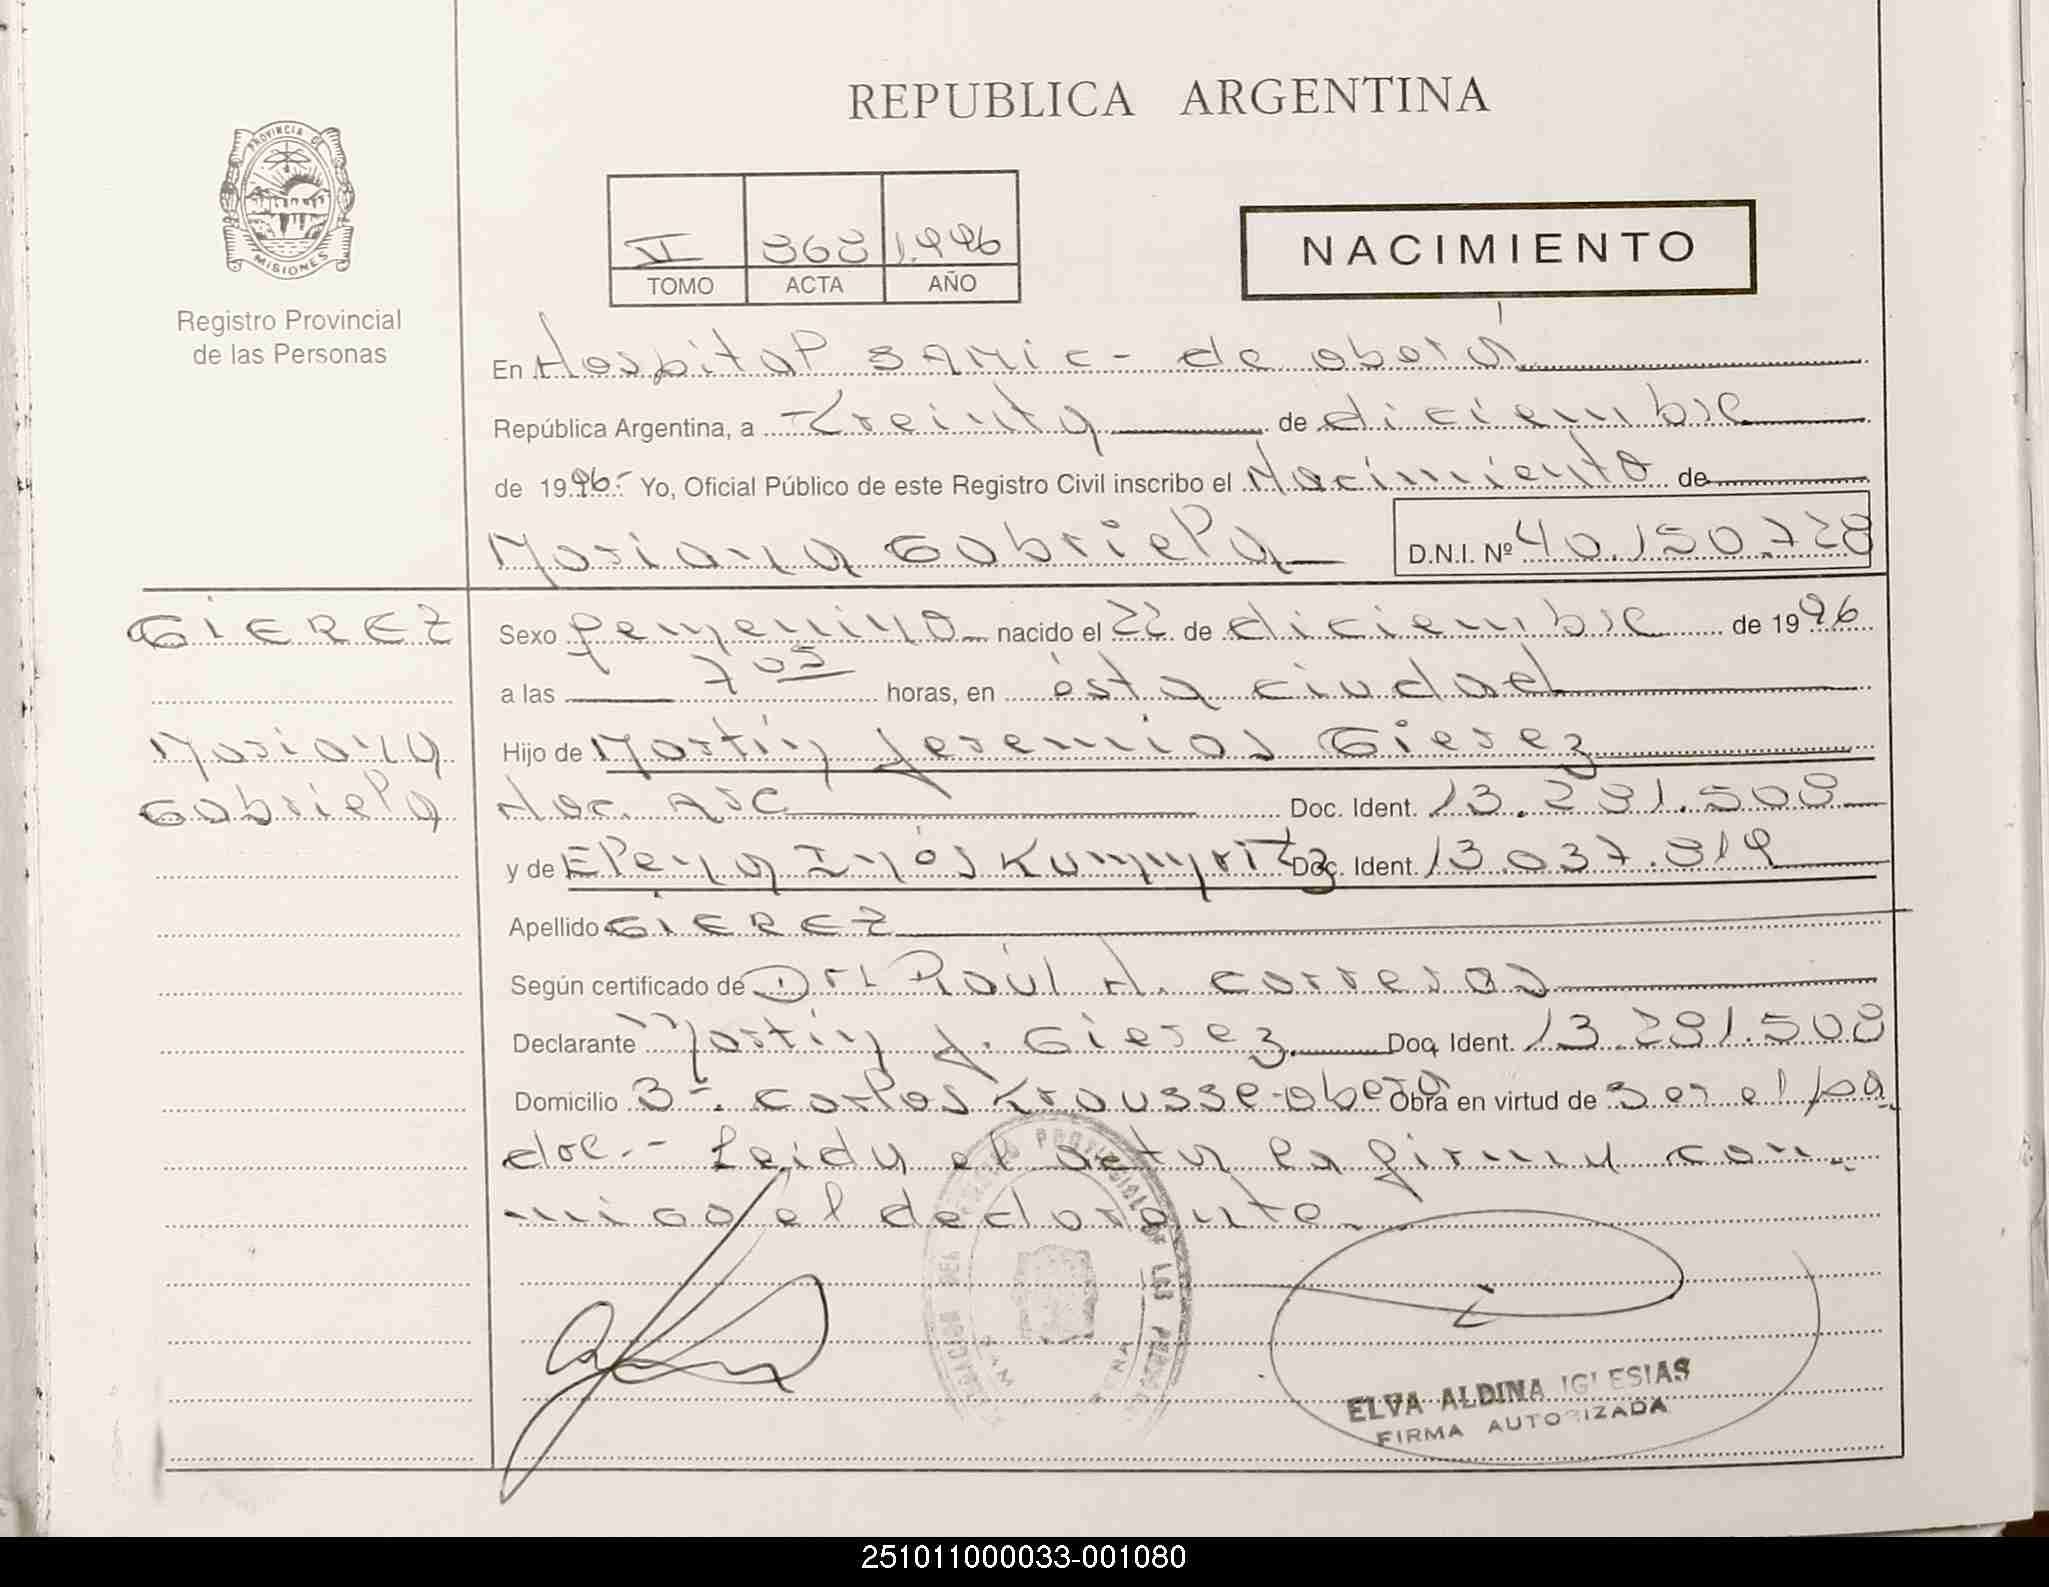 REPUBLICA ARGENTINA
PROVINCIA DE
MISIONES
Registro Provincial
de las Personas
VI 868 1.996
TOMO ACTA AÑO
NACIMIENTO
En Hospital SAMic - de oberá
República Argentina, a Treinta de diciembre
de 1996- Yo, Oficial Público de este Registro Civil inscribo el Nacimiento de
Mariana Gabriela D.N.I. Nº 40.150.728
GIEREZ
Mariana
Gabriela
Sexo femenino nacido el 22 de diciembre de 1996
a las 7 05 horas, en ésta ciudad
Hijo de Martín Jeremias Gierez
Nac. Arg Doc. Ident. 13.281.508
y de Elena Inés Kummritz Doc. Ident. 13.037.819
Apellido GIEREZ
Según certificado de Dr: Raúl A. Carreras
Declarante Martín J. Gierez Doc. Ident. 13.281.508
Domicilio B- Carlos Krausse-oberá Obra en virtud de ser el pa
dre.- Leida el acta la firma con-
migo el declarante.
ELVA ALDINA IGLESIAS
FIRMA AUTORIZADA
251011000033-001080